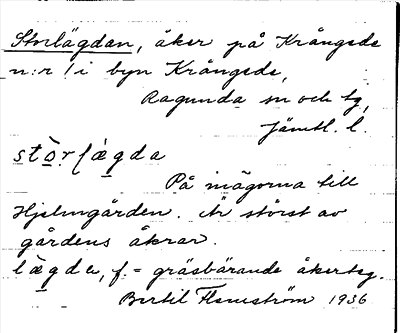 Storlägdan, åker på Krångede
n:r 1 i byn Krångede,
Ragunda sn och tg,
Jämtl. l.
stò̱rḷä̀gda
På inägorna till
Hjelmgården. Är störst av
gårdens åkrar.
lä̀gda, f. = gräsbärande åkerteg.
Bertil Flemström 1936